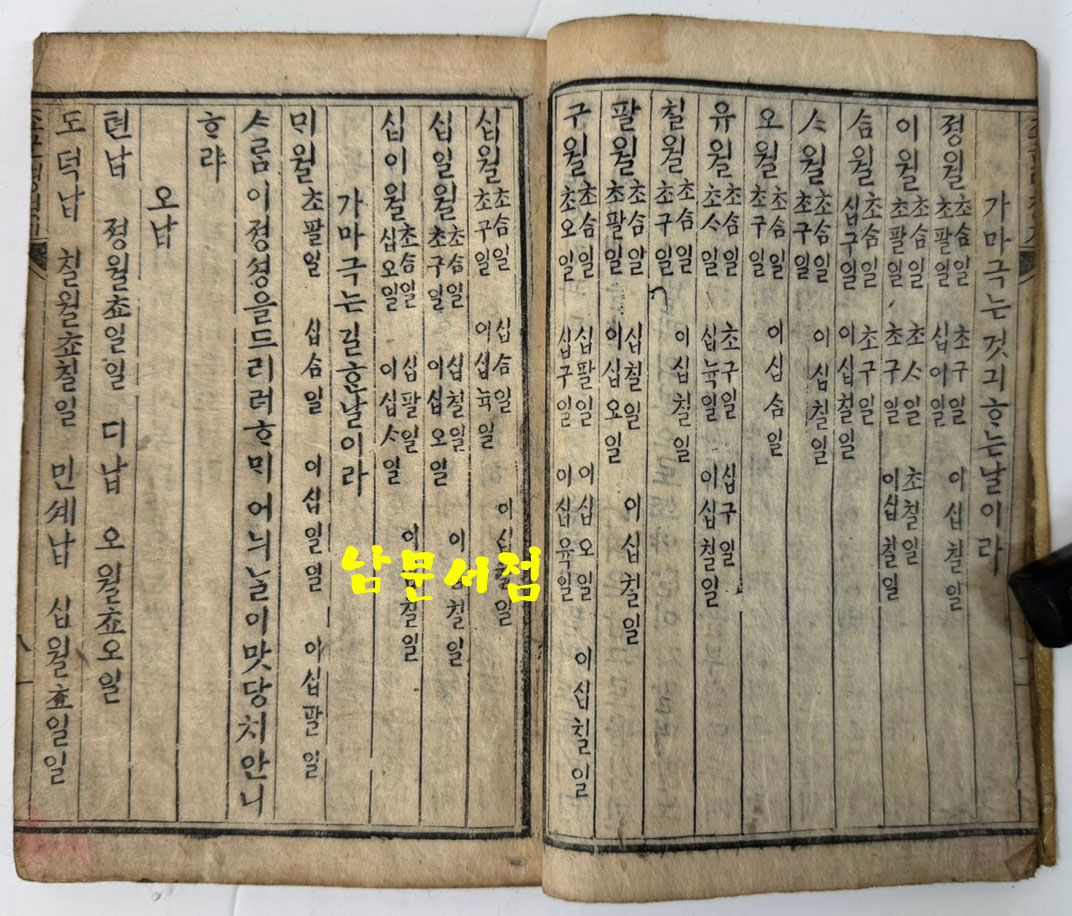 가마극는것긔ᄒᆞ는날이라
졍월 초ᄉᆞᆷ일 초팔일 초구일 십이일 이십칠일
이월 초ᄉᆞᆷ일 초팔일 초ᄉᆞ일 초구일 초칠일 이십칠일
ᄉᆞᆷ월 초ᄉᆞᆷ일 십구일 초구일 이십칠일
ᄉᆞ월 초ᄉᆞᆷ일 초구일 이십칠일
오월 초ᄉᆞᆷ일 초구일 이십ᄉᆞᆷ일
유월 초ᄉᆞᆷ일 초ᄉᆞ일 초구일 십뉵일 십구일 이십칠일
칠월 초ᄉᆞᆷ일 초구일 이십칠일
팔월 초ᄉᆞᆷ일 초팔일 십칠일 이십오일 이십칠일
구월 초ᄉᆞᆷ일 초오일 십팔일 십구일 이십오일 이십육일 이십칠일
십월 초ᄉᆞᆷ일 초구일 십ᄉᆞᆷ일 이십뉵일 이십칠일
십일월 초ᄉᆞᆷ일 초구일 십칠일 이십오일 이십칠일
십이월 초ᄉᆞᆷ일 십오일 십팔일 이십ᄉᆞ일 이십칠일
가마극는길ᄒᆞᆫ날이라
ᄆᆡ월 초팔일 십ᄉᆞᆷ일 이십일일 이십팔일
ᄉᆞ름이졍셩을드리려ᄒᆞᄆᆡ어늬날이맛당치안니
ᄒᆞ랴
오납
텬납 졍월쵸일일 디납 오월쵸오일
도덕납 칠월쵸칠일 민셰납 십월쵸일일
남문서점